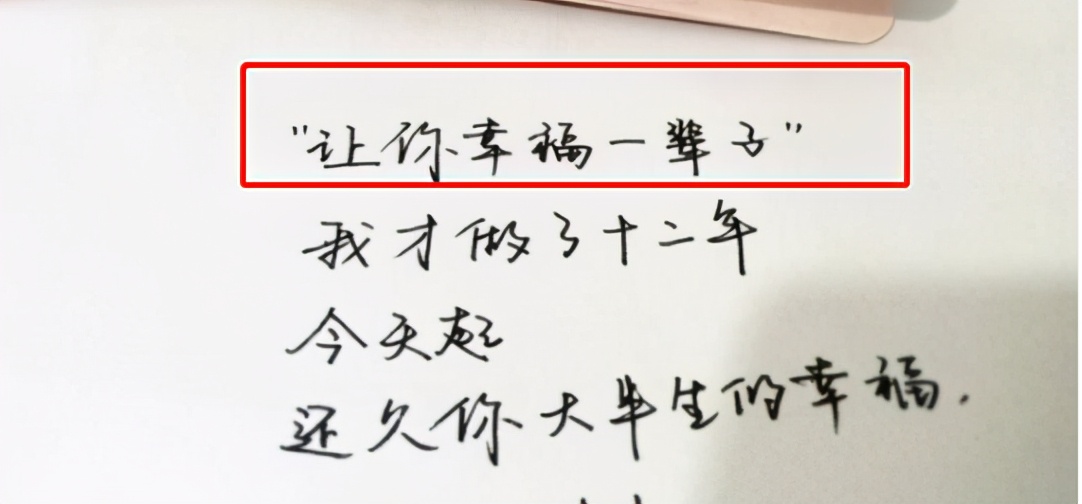 "让你幸福一辈子"
我才做了十二年
今天起
还久你大半生的幸福.